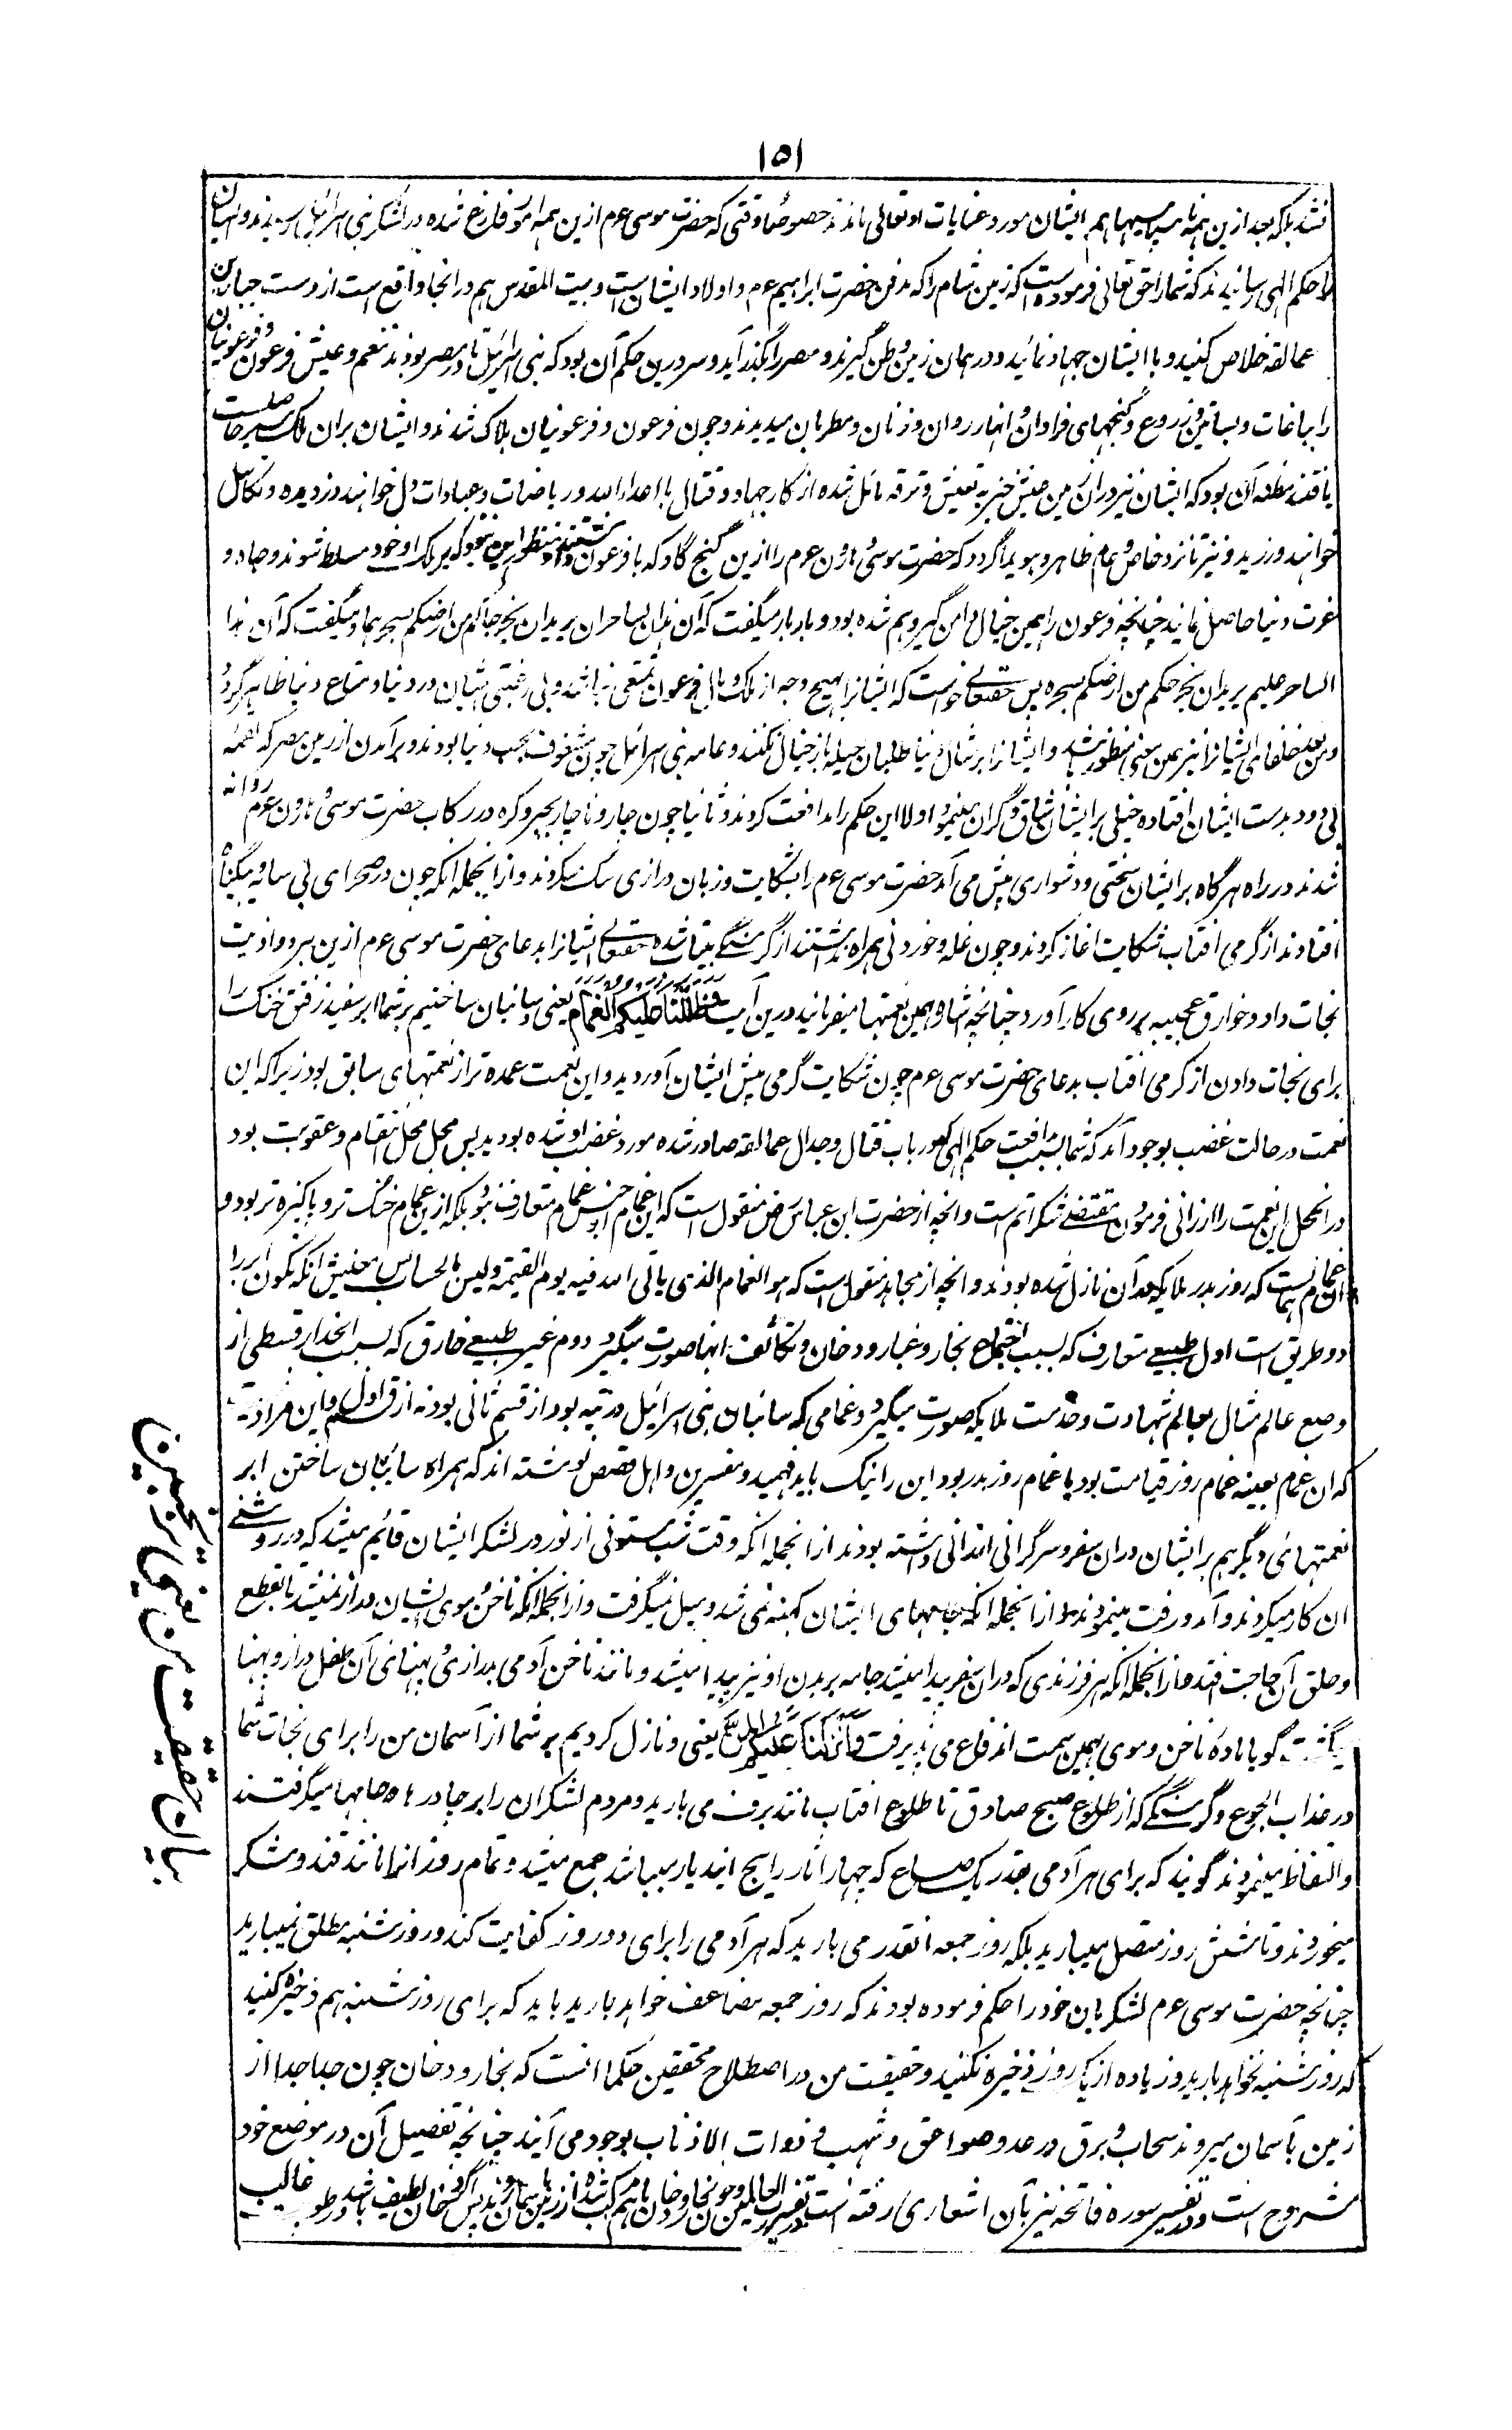 ١٥١
نشد بلکه بعد ازین همه ناسپاسیها هم ایشان مورد عنایات او تعالی ماندند خصوصا وقتی که حضرت موسی عم ازین همه امور فارغ شده در لشکر بنی اسرائیل رسیدند و ایشان
را حکم الهی رسانیدند که شما را حق تعالی فرموده است که زمین شام را که مدفن حضرت ابراهیم عم و اولاد ایشان است و بیت المقدس هم در انجا واقع است از دست جبارین
عمالقه خلاص کنید و با ایشان جهاد نمائید و در همان زمین وطن گیرند و مصر را بگذرآید و سر درین حکم آن بود که بنی اسرائیل تا در مصر بودند تنعم و عیش فرعون و فرعونیان
را بباغات و بساتین و زروع و گنجهای فراوان و انهار روان و زنان و مطربان میدیدند و چون فرعون و فرعونیان هلاک شدند و ایشان بران ملک سیرحاصلت
یافتند مظنه آن بود که ایشان نیز دران زمین عیش خیز به تعیش و ترفه مائل شده از کار جهاد و قتال با اعداء الله و ریاضات و عبادات دل خواهند دزدیده و تکاسل
خواهند ورزید و نیز تا نزد خاص و عام ظاهر و هویدا گردد که حضرت موسی و هارون عم را ازین کنج گاو که با فرعون داشتند منظور این نبود که بر ملک او خود مسلط شوند و جاه و
عزت دنیا حاصل نمایند چنانچه فرعون را همین خیال دامن گیر وهم شده بود و بار بار میگفت که ان هذان لساحران یریدان یخرجاکم من ارضکم بسحرهما و میگفت که ان هذا
الساحر علیم یریدان یخرجکم من ارضکم بسحره پس حقتعالی خواست که ایشانرا بهیچ وجه از ملک و مال فرعون تمتعی نباشد و بی رغبتی ایشان در دنیا و متاع دنیا ظاهر گردد
و من بعد خلفای ایشانرا نیز همین معنی منظور باشد و ایشانرا بر مثال دنیا طلبان حیله باز خیال نکنند و عامه بنی اسرائیل چون مشغوف بحب دنیا بودند و برآمدن از زمین مصر که لقمه
بی دود بدست ایشان افتاده خیلی بر ایشان شاق و گران مینمود اولا این حکم را مدافعت کردند و ثانیا چون چار و ناچار بجبر و کره در رکاب حضرت موسی و هارون عم روانه
شدند در راه هر گاه بر ایشان سختی و دشواری پیش می آمد حضرت موسی عم را بشکایت و زبان درازی تنگ میکردند و از انجمله انکه چون در صحرای بی سایه و بیگیاه
افتادند از گرمی افتاب شکایت اغاز کردند و چون غله و خوردنی همراه نداشتند از گرسنگی بیتاب شده حقتعالی ایشانرا بدعای حضرت موسی عم ازین هر دو اذیت
نجات داد و خوارق عجیبه بر روی کار آورد چنانچه اشاره بهمین نعمتها میفرمایند درین آیت وَظَلَّلْنَا عَلَيْكُمُ الْغَمَامَ یعنی و سایبان ساختیم بر شما ابر سفید رقیق خنک را
برای نجات دادن از گرمی افتاب بدعای حضرت موسی عم چون شکایت گرمی پیش ایشان آوردید و این نعمت عمده تر از نعمتهای سابق بود زیرا که این
نعمت در حالت غضب بوجود آمد که شما بسبب مدافعت حکم الهی که در باب قتال و جدال عمالقه صادر شده مورد غضب او شده بودید پس محل محل انتقام و عقوبت بود
در انمحل این نعمت را ارزانی فرمودن مقتضی شکر اتم است و انچه از حضرت ابن عباس رض منقول است که این غمام از جنس غمام متعارف نبود بلکه ازین غمام خنک تر و پاکیزه تر بود و
ان غمام همانست که روز بدر ملایکه در آن نازل شده بودند و انچه از مجاهد منقول است که هو الغمام الذی یاتی الله فیه یوم القیمة و لیس بالسحاب پس معنیش انکه تکون ابر را
دو طریق است اول طبیعی متعارف که بسبب اجتماع بخار و غبار و دخان و تکاثف انها صورت میگیرد دوم غیر طبیعی خارق که بسبب انحدار قسطی از
وضع عالم مثال بعالم شهادت و خدمت ملایکه صورت میگیرد و غمامی که سایبان بنی اسرائیل در تیه بود از قسم ثانی بود نه از قسم اول و این مراد نیست
که ان غمام بعینه غمام روز قیامت بود یا غمام روز بدر بود این را نیک باید فهمید و مفسرین و اهل قصص نوشته اند که همراه سایبان ساختن ابر
نعمتهای دیگر هم بر ایشان دران سفر و سرگرانی ارزانی داشته بودند از انجمله انکه وقت شب ستونی از نور در لشکر ایشان قائم میشد که در روشنی
ان کار میکردند و آمد و رفت مینمودند و از انجمله انکه جامهای ایشان کهنه نمی شد و میل نمیگرفت و از انجمله انکه ناخن و موی ایشان دراز نمیشد تا بقطع
و حلق آن حاجت افتد و از انجمله انکه هر فرزندی که دران سفر پیدا میشد جامه بر بدن او نیز پیدا میشد و مانند ناخن آدمی بدرازی و پهنای آن طفل دراز و پهنا
میگشت گویا ماده ناخن و موی بهمین سمت اندفاع می پذیرفت وَأَنْزَلْنَا عَلَيْكُمُ الْمَنَّ یعنی و نازل کردیم بر شما از آسمان من را برای نجات شما
در عذاب الجوع و گرسنگی که از طلوع صبح صادق تا طلوع افتاب مانند برف می بارید و مردم لشکر ان را بر چادرها و جامها میگرفتند
و التقاط مینمودند گویند که برای هر آدمی بقدر یک صاع که چهار اثار رایج این دیار میباشد جمع میشد و تمام روز انرا مانند قند و شکر
میخوردند و تا شش روز متصل میبارید بلکه روز جمعه انقدر می بارید که هر آدمی را برای دو روز کفایت کند و روز شنبه مطلق نمیبارید
چنانچه حضرت موسی عم لشکریان خود را حکم فرموده بودند که روز جمعه مضاعف خواهد بارید باید که برای روز شنبه هم ذخیره کنید
که روز شنبه نخواهد بارید و زیاده از یک روز ذخیره نکنید و حقیقت من در اصطلاح محققین حکما انست که بخار و دخان چون جدا جدا از
زمین بآسمان میروند سحاب و برق و رعد و صواعق و شهب و ذوات الاذناب بوجود می آیند چنانچه تفصیل آن در موضع خود
مشروح است و در تفسیر سوره فاتحه نیز بآن اشعاری رفته است در تفسیر رب العالمین و چون بخار و دخان باهم مرکب شده از زمین بآسمان روند پس اگر دخان لطیف باشد و رطوبت غالب
بیان حقیقت من یعنی ترنجبین